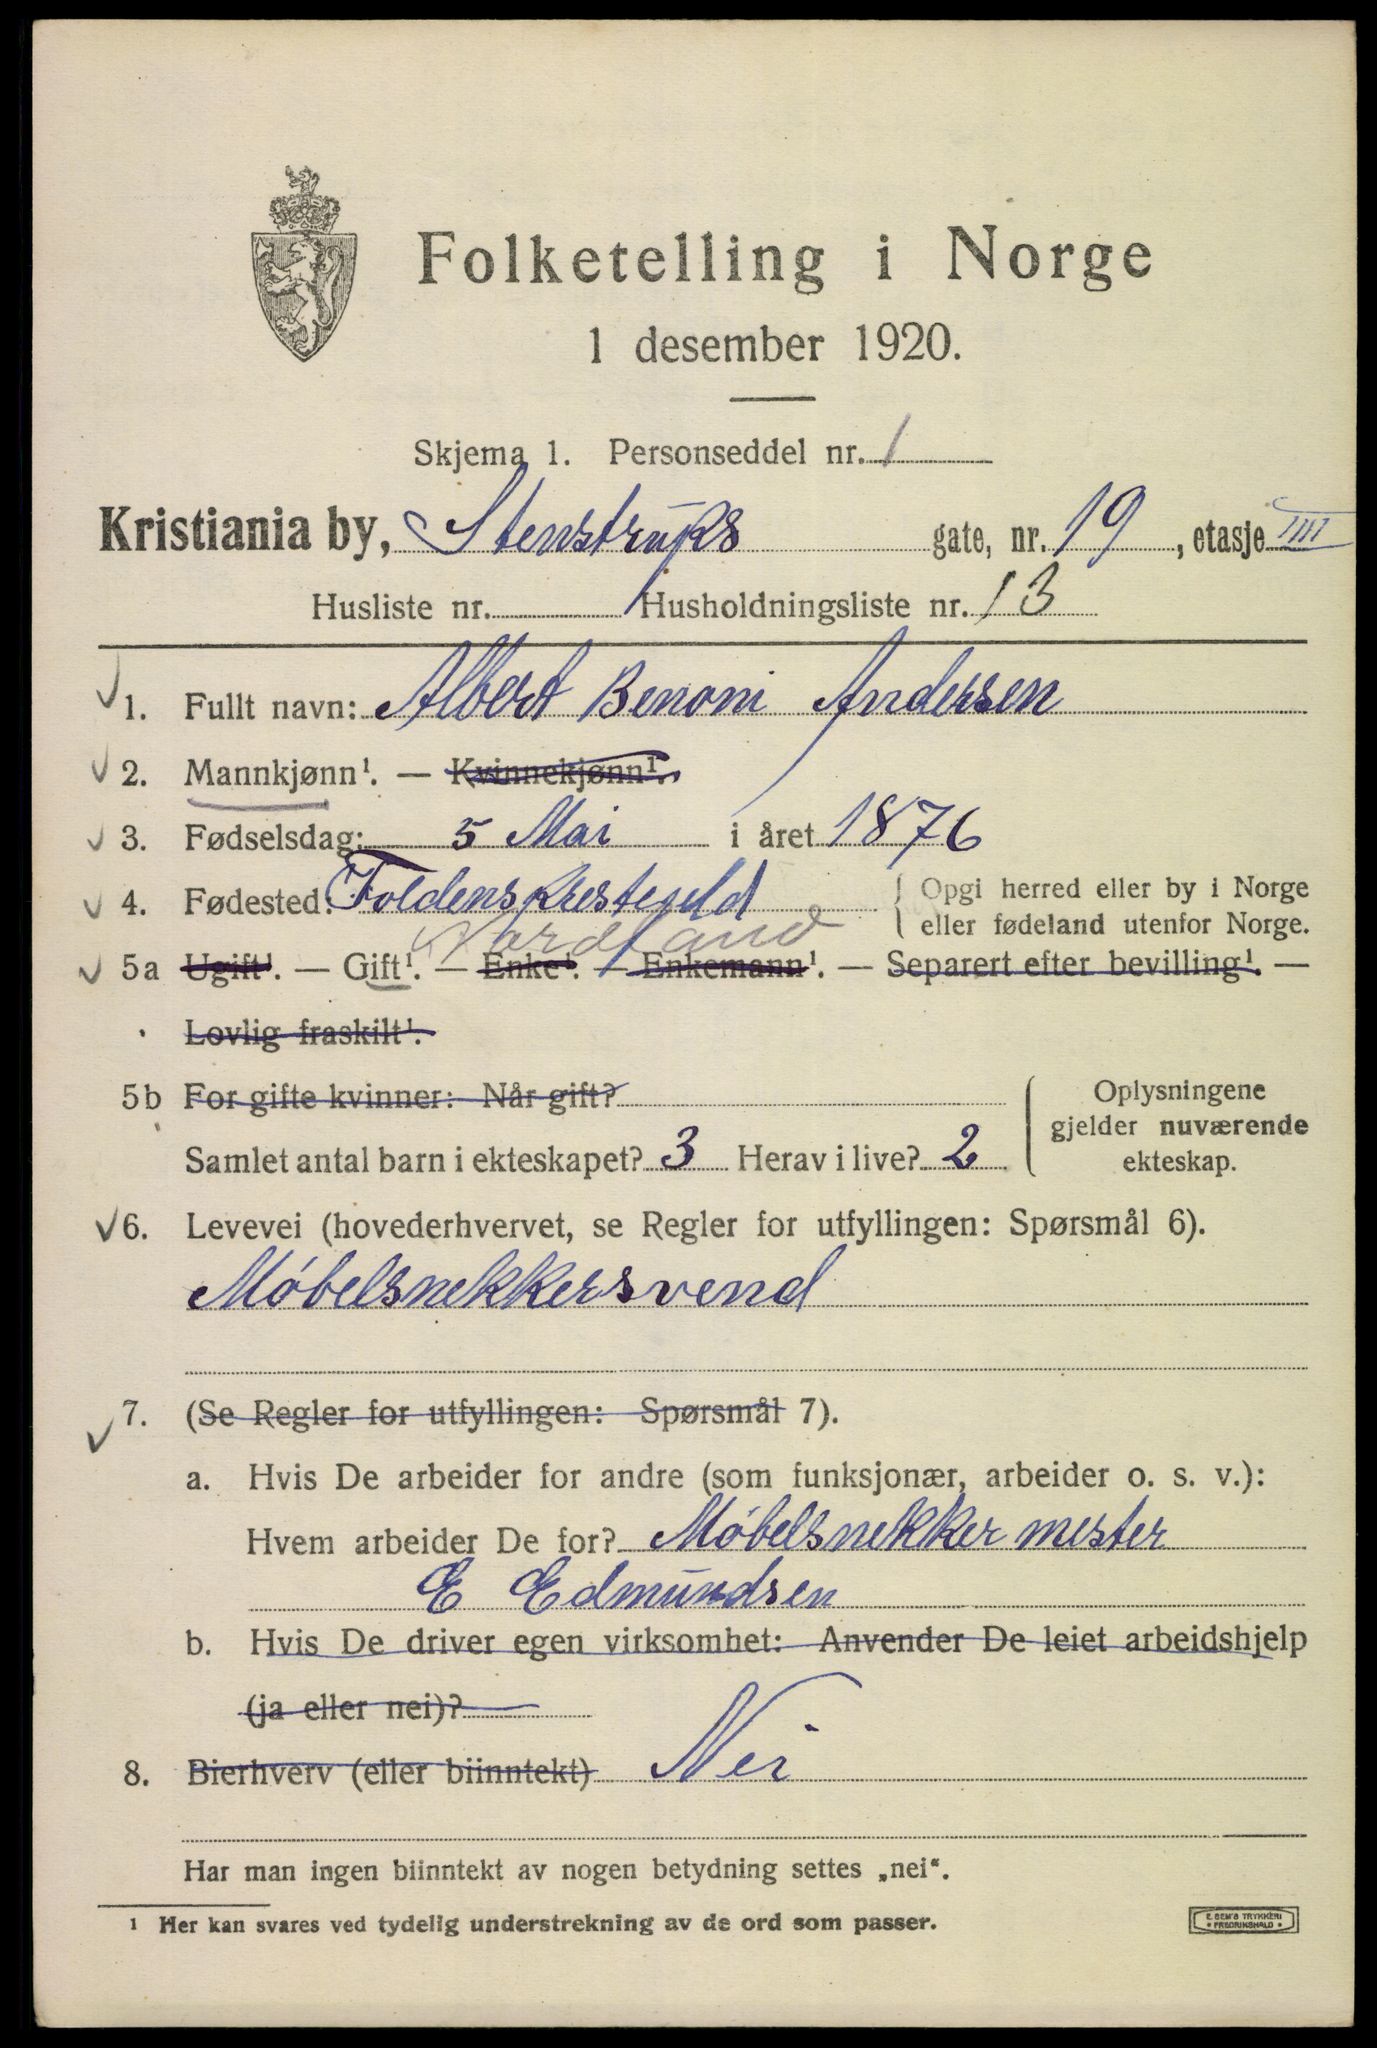 Folketelling i Norge
1 desember 1920.
Skjema 1. Personseddel nr. 1
Kristiania by, Stenstrups gate, nr. 19, etasje IIII
Husliste nr. Husholdningsliste nr. 13
1. Fullt navn: Albert Benoni Andersen
2. Mannkjønn¹. — Kvinnekjønn¹.
3. Fødselsdag: 5 Mai i året 1876
4. Fødested: Foldens { Opgi herred eller by i Norge
eller fødeland utenfor Norge.
Nordland
5a Ugift¹. — Gift¹. — Enke¹. — Enkemann¹. — Separert efter bevilling¹. —
Lovlig fraskilt¹.
5b For gifte kvinner: Når gift?
Samlet antal barn i ekteskapet? 3 Herav i live? 2
Oplysningene
gjelder nuværende
ekteskap.
6. Levevei (hovederhvervet, se Regler for utfyllingen: Spørsmål 6).
Møbelsnekkersvend
7. (Se Regler for utfyllingen: Spørsmål 7).
a. Hvis De arbeider for andre (som funksjonær, arbeider o. s. v.):
Hvem arbeider De for? Møbelsnekker mester
E Edmundsen
b. Hvis De driver egen virksomhet: Anvender De leiet arbeidshjelp
(ja eller nei)?
8. Bierhverv (eller biinntekt) Nei
Har man ingen biinntekt av nogen betydning settes „nei“.
¹ Her kan svares ved tydelig understrekning av de ord som passer.
E. SEM'S TRYKKERI
• FREDRIKSHALD •